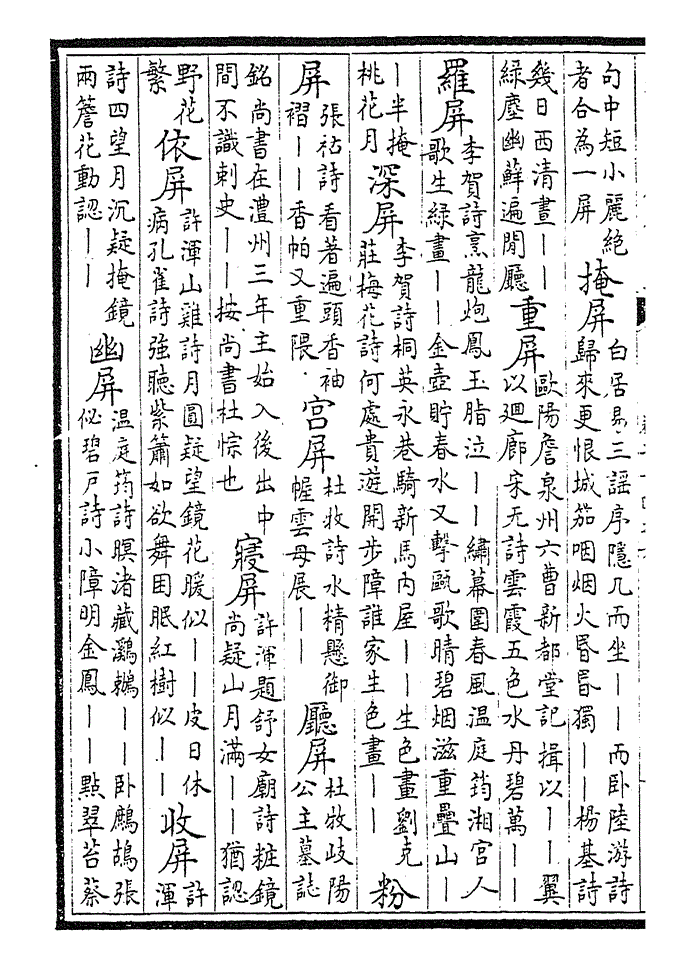 句中短小麗絶
者合為一屏
掩屏
白居易三謡序隱几而坐——而卧陸游詩
歸來更恨城笳咽烟火昏昏獨——楊基詩
幾日西清晝——
緑塵幽蘚遍閒廳
重屏
歐陽詹泉州六曹新都堂記揖以——翼
以廻廊宋无詩雲霞五色水丹碧萬——
羅屏
李賀詩烹龍炮鳳玉脂泣——繡幕圍春風温庭筠湘宮人
歌生緑畫——金壺貯春水又擊甌歌晴碧烟滋重疊山—
—半掩
桃花月
深屏
李賀詩桐英永巷騎新馬内屋——生色畫劉克
莊梅花詩何處貴遊開步障誰家生色畫——
粉
屏
張祜詩看著遍頭香袖
褶——香帕又重隈
宮屏
杜牧詩水精懸御
幄雲母展——
廳屏
杜牧歧陽
公主墓誌
銘尚書在澧州三年主始入後出中
間不識刺史——按尚書杜悰也
寢屏
許渾題舒女廟詩粧鏡
尚疑山月滿——猶認
野花
繁
依屏
許渾山雞詩月圓疑望鏡花暖似——皮日休
病孔雀詩強聽紫簫如欲舞困眠紅樹似——
收屏
許
渾
詩四望月沉疑掩鏡
兩簷花動認——
幽屏
温庭筠詩暝渚藏鸂鶒——卧鷓鴣張
似碧戸詩小障明金鳳——點翠苔蔡